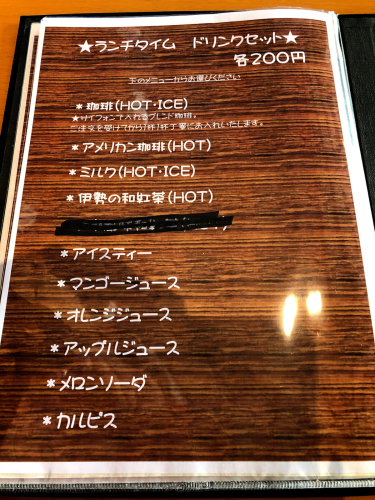 ★ランチタイム　ドリンクセット★
各200円
下のメニューからお選びください
*珈琲(HOT・ICE)
★サイフォンで入れるブレンド珈琲。
ご注文を受けてから1杯1杯丁寧にお入れいたします。
*アメリカン珈琲(HOT)
*ミルク(HOT・ICE)
*伊勢の和紅茶(HOT)
*アイスティー
*マンゴージュース
*オレンジジュース
*アップルジュース
*メロンソーダ
*カルピス